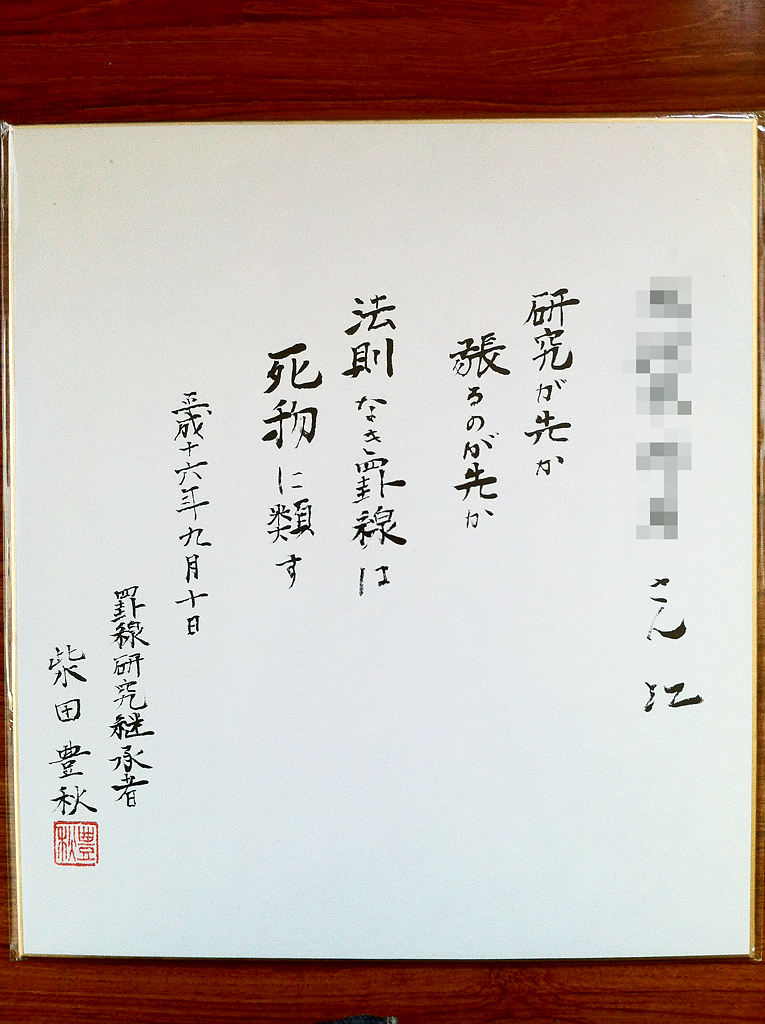 さん江
研究が先か
張るのが先か
法則なき罫線は
死物に類す
平成十六年九月十日
罫線研究継承者
柴田豊秋
豊秋